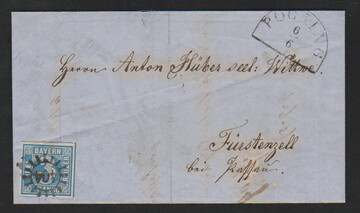 POCKING
6
6
Herrn Anton Huber seel: Wittwe.
Fürstenzell
bei Passau.
BAYERN